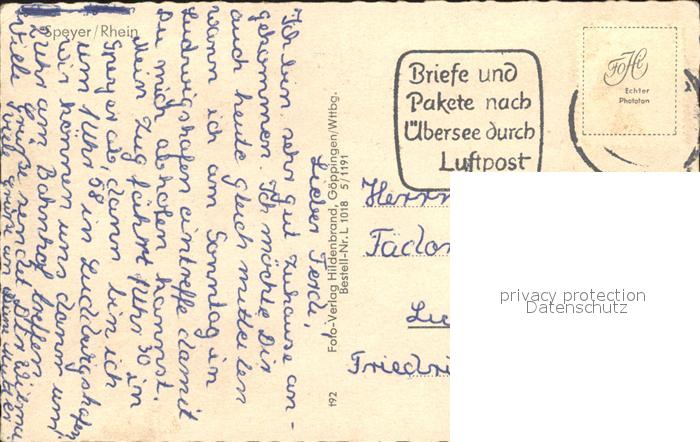 Speyer/Rhein
Lieber Ferdi,
Ich bin sehr gut zuhause an-
gekommen. Ich möchte Dir
auch heute gleich mitteilen
wann ich am Sonntag in
Ludwigshafen eintreffe damit
Du mich abholen kannst.
Mein Zug fährt 1 Uhr 30 in
Speyer ab, dann bin ich
um 1 Uhr 58 in Ludwigshafen
Wir können uns dann um
2 Uhr am Bahnhof treffen
Viele Grüße sendet Dir
Viele Grüße an Deine Mutter
192 Foto-Verlag Hildenbrand, Göppingen/Wttbg.
Bestell-Nr. L 1018 5/1191
Briefe und
Pakete nach
Übersee durch
Luftpost
FoHi
Echter
Phototon
Herrn
Friedri
privacy protection
Datenschutz